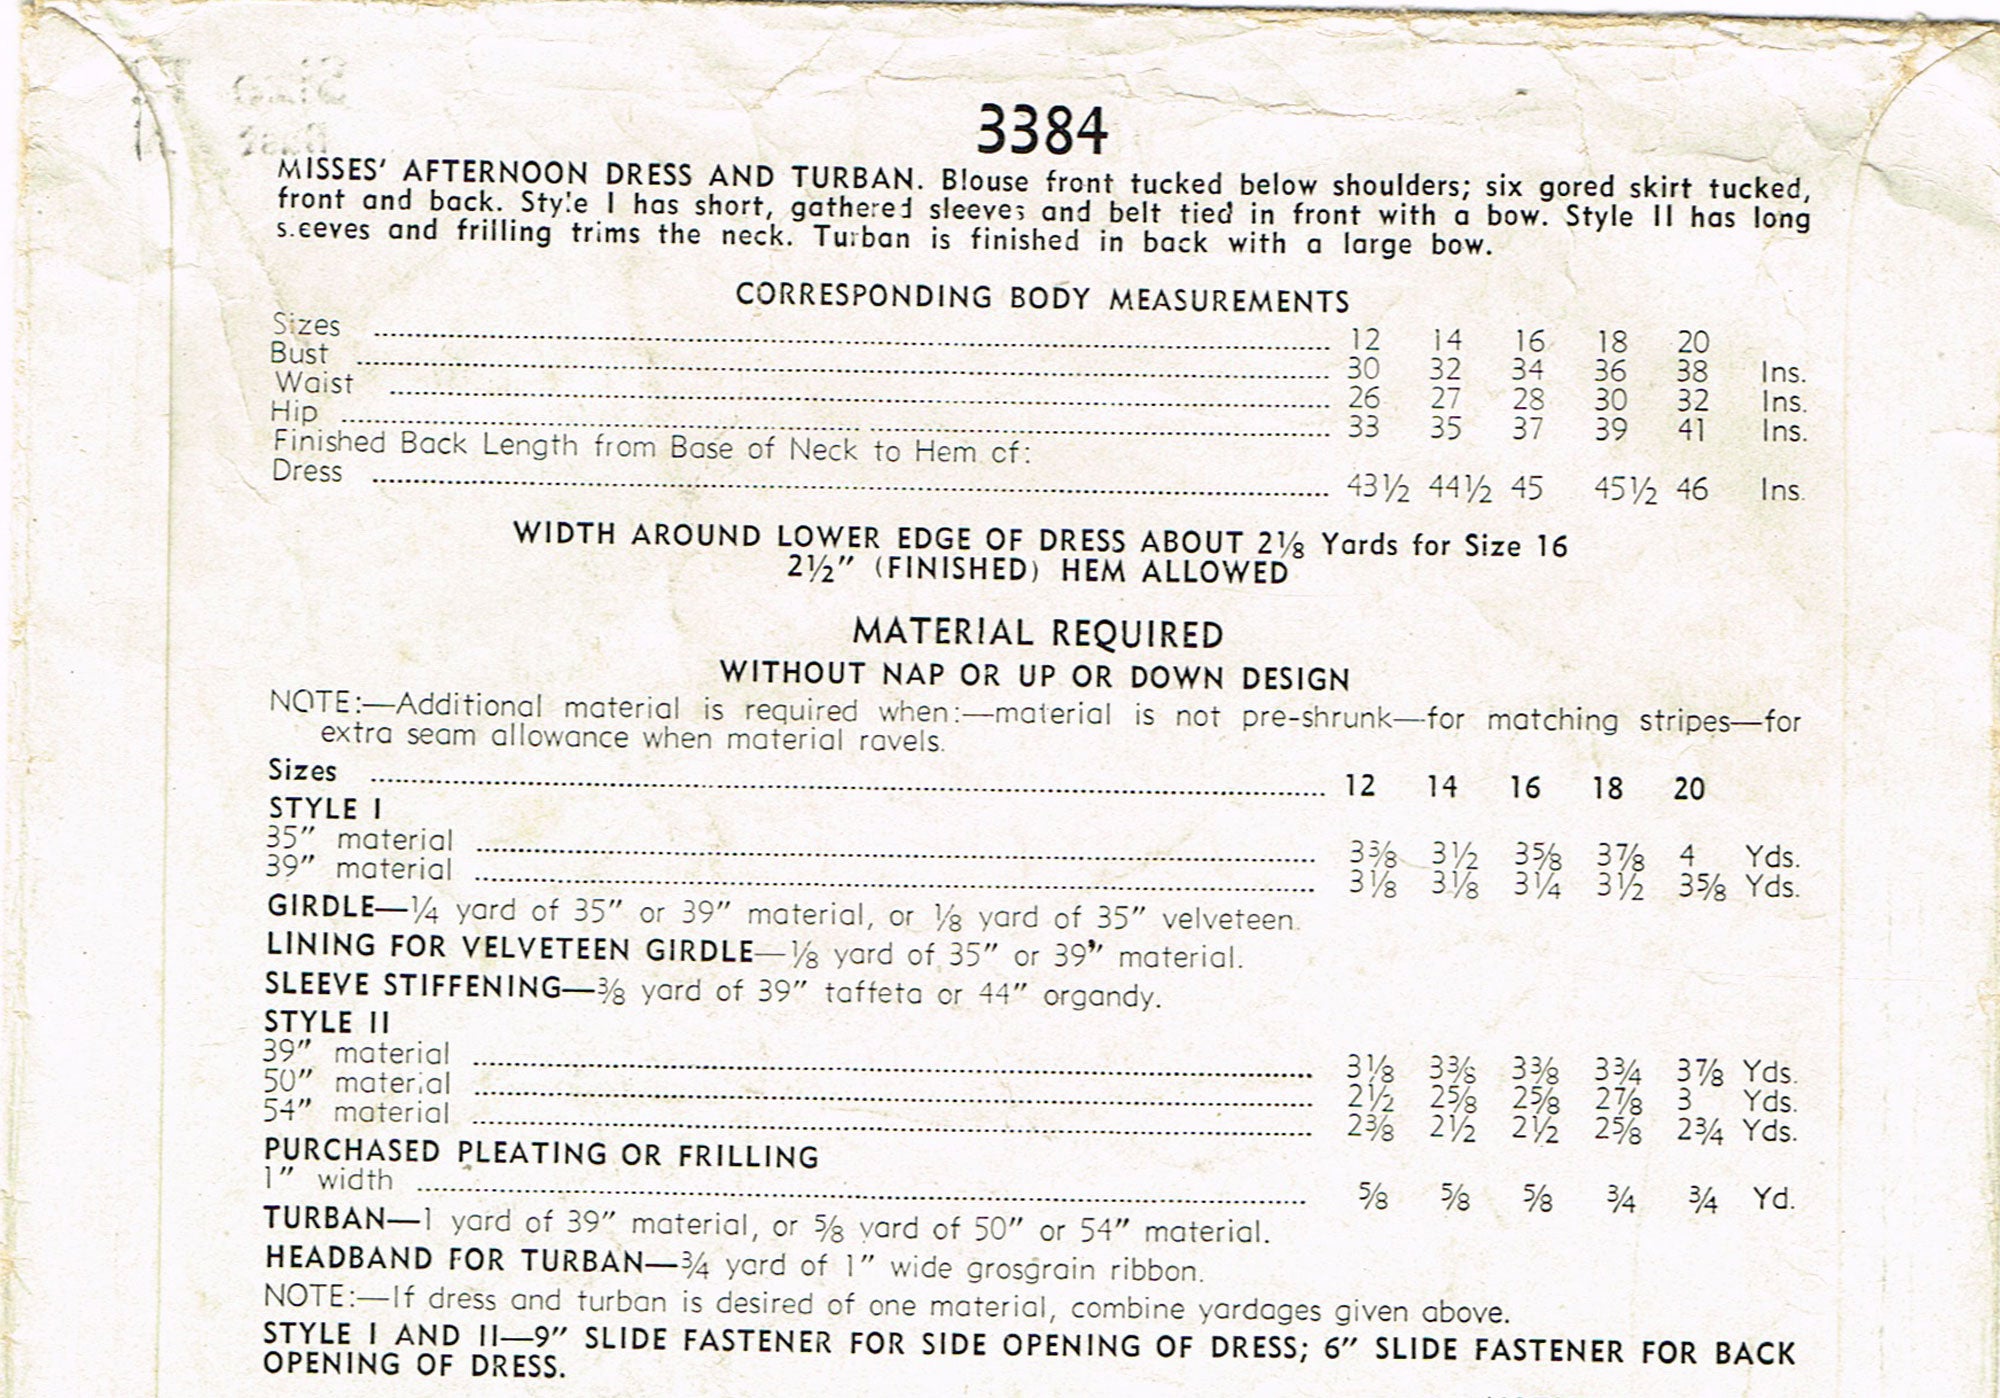 3384
MISSES' AFTERNOON DRESS AND TURBAN. Blouse front tucked below shoulders; six gored skirt tucked,
front and back. Style I has short, gathered sleeves and belt tied in front with a bow. Style II has long
sleeves and frilling trims the neck. Turban is finished in back with a large bow.
CORRESPONDING BODY MEASUREMENTS
Sizes 12 14 16 18 20
Bust 30 32 34 36 38 Ins.
Waist 26 27 28 30 32 Ins.
Hip 33 35 37 39 41 Ins.
Finished Back Length from Base of Neck to Hem of:
Dress 43½ 44½ 45 45½ 46 Ins.
WIDTH AROUND LOWER EDGE OF DRESS ABOUT 2⅛ Yards for Size 16
2½" (FINISHED) HEM ALLOWED
MATERIAL REQUIRED
WITHOUT NAP OR UP OR DOWN DESIGN
NOTE:—Additional material is required when:—material is not pre-shrunk—for matching stripes—for
extra seam allowance when material ravels.
Sizes 12 14 16 18 20
STYLE I
35" material 3⅜ 3½ 3⅝ 3⅞ 4 Yds.
39" material 3⅛ 3⅛ 3¼ 3½ 3⅝ Yds.
GIRDLE—¼ yard of 35" or 39" material, or ⅛ yard of 35" velveteen.
LINING FOR VELVETEEN GIRDLE—⅛ yard of 35" or 39" material.
SLEEVE STIFFENING—⅜ yard of 39" taffeta or 44" organdy.
STYLE II
39" material 3⅛ 3⅜ 3⅜ 3¾ 3⅞ Yds.
50" material 2½ 2⅝ 2⅝ 2⅞ 3 Yds.
54" material 2⅜ 2½ 2½ 2⅝ 2¾ Yds.
PURCHASED PLEATING OR FRILLING
1" width ⅝ ⅝ ⅝ ¾ ¾ Yd.
TURBAN—1 yard of 39" material, or ⅝ yard of 50" or 54" material.
HEADBAND FOR TURBAN—¾ yard of 1" wide grosgrain ribbon.
NOTE:—If dress and turban is desired of one material, combine yardages given above.
STYLE I AND II—9" SLIDE FASTENER FOR SIDE OPENING OF DRESS; 6" SLIDE FASTENER FOR BACK
OPENING OF DRESS.